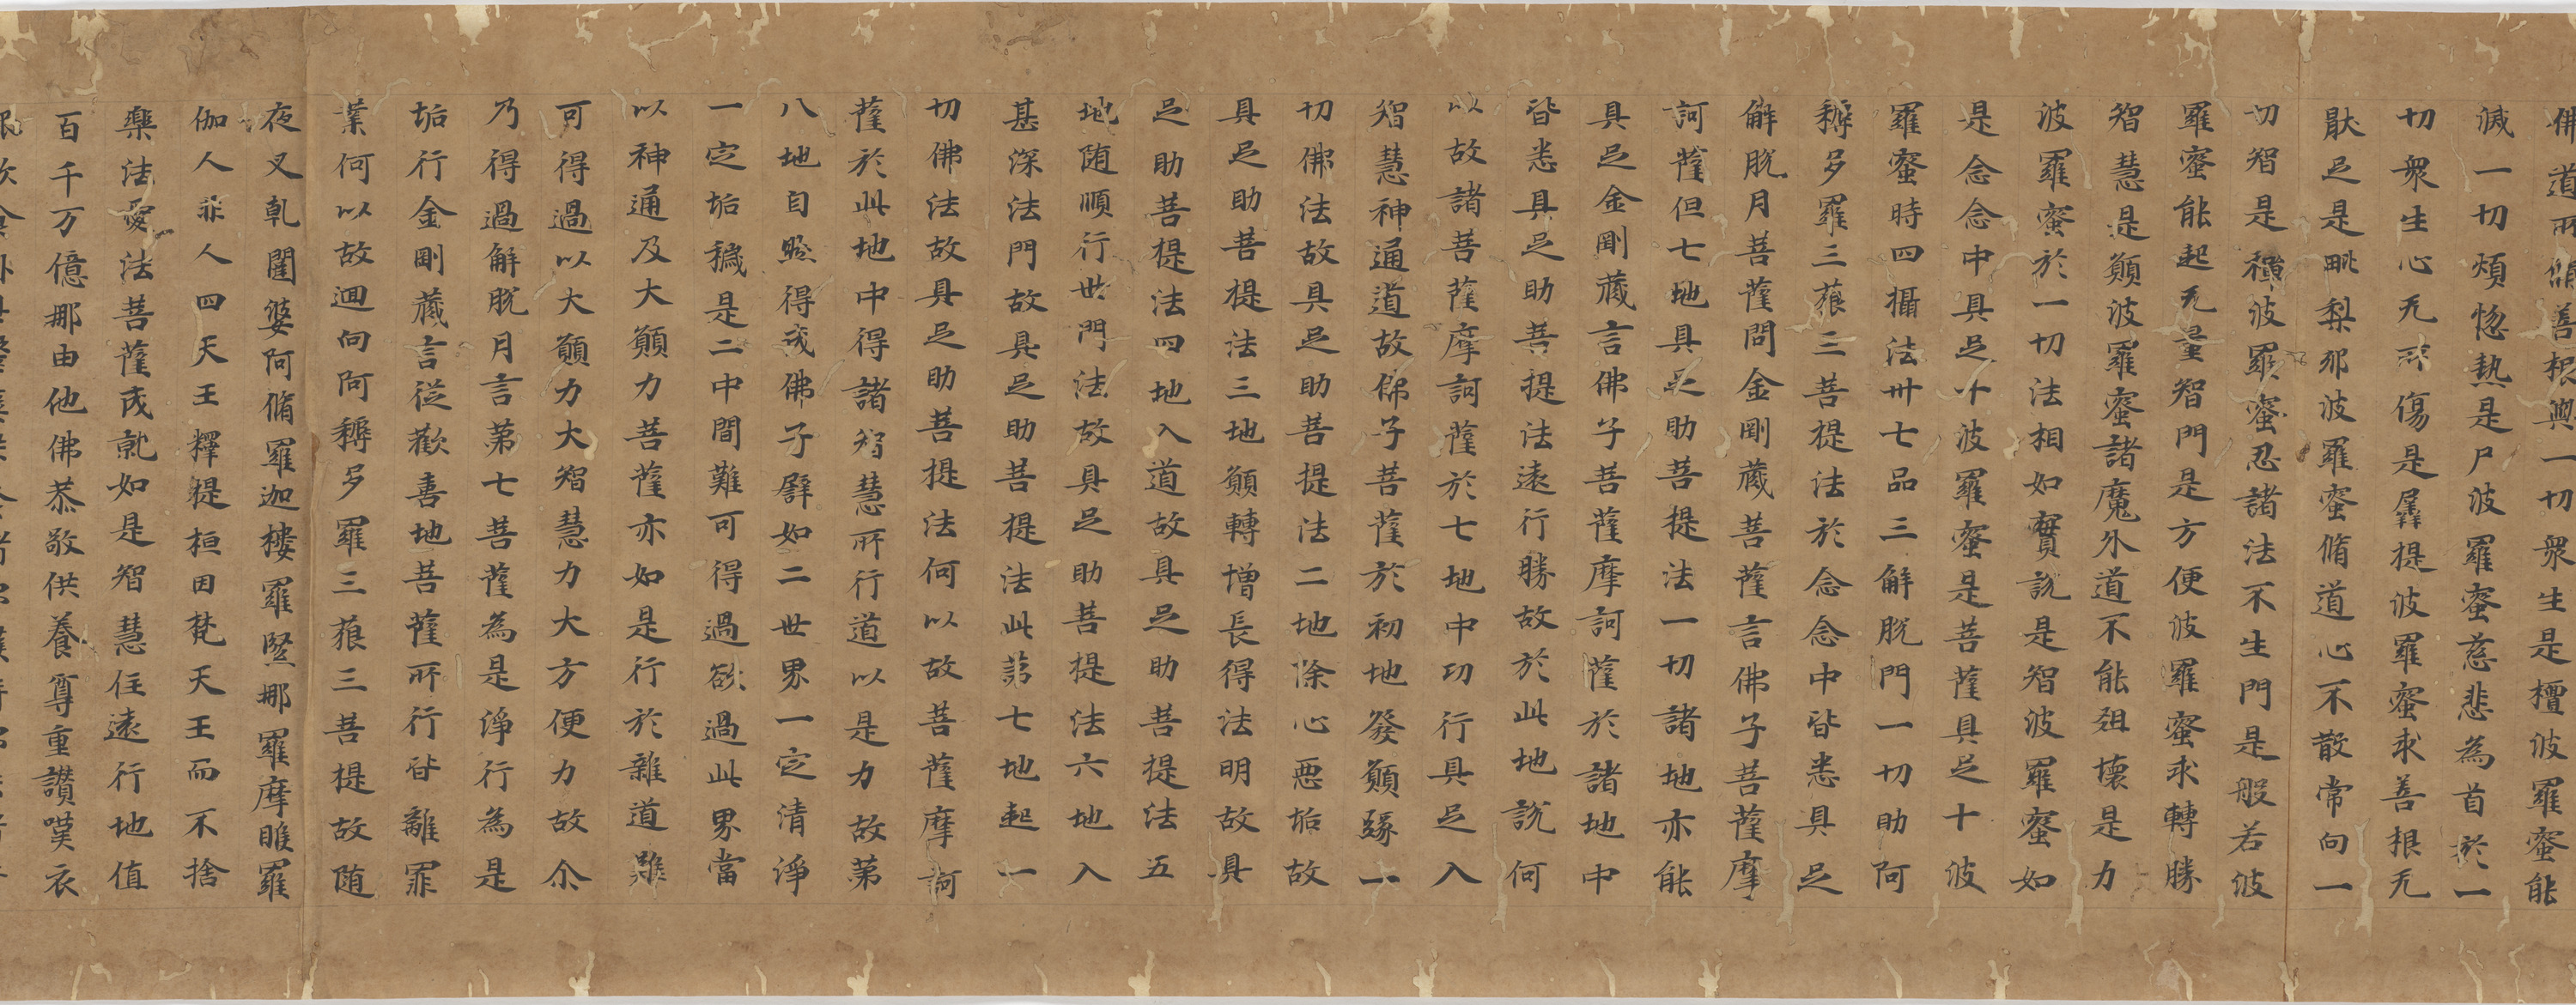 佛道所備善根與一切衆生是檀波羅蜜能
滅一切煩惚熱是尸波羅蜜慈悲為首於一
切衆生心无所傷是羼提波羅蜜求善根无
猒足是毗梨耶波羅蜜脩道心不散常向一
切智是禪波羅蜜忍諸法不生門是般若波
羅蜜能起无量智門是方便波羅蜜求轉勝
智慧是願波羅蜜諸魔外道不能沮壞是力
波羅蜜於一切法相如實說是智波羅蜜如
是念念中具足十波羅蜜是菩薩具足十波
羅蜜時四攝法卅七品三解脫門一切助阿
耨多羅三藐三菩提法於念念中皆悉具足
解脫月菩薩問金剛藏菩薩言佛子菩薩摩
訶薩但七地具足助菩提法一切諸地亦能
具足金剛藏言佛子菩薩摩訶薩於諸地中
皆悉具足助菩提法遠行勝故於此地說何
以故諸菩薩摩訶薩於七地中功行具足入
智慧神通道故佛子菩薩於初地發願緣一
切佛法故具足助菩提法二地除心惡垢故
具足助菩提法三地願轉增長得法明故具
足助菩提法四地入道故具足助菩提法五
地随順行世門法故具足助菩提法六地入
甚深法門故具足助菩提法此苐七地起一
切佛法故具足助菩提法何以故菩薩摩訶
薩於此地中得諸智慧所行道以是力故苐
八地自然得成佛子譬如二世界一定清淨
一定垢穢是二中間難可得過欲過此界當
以神通及大願力菩薩亦如是行於雜道難
可得過以大願力大智慧力大方便力故尒
乃得過解脫月言苐七菩薩為是淨行為是
垢行金剛藏言從歡喜地菩薩所行皆離罪
業何以故迴向阿耨多羅三藐三菩提故随
夜叉乹闥婆阿脩羅迦樓羅緊那羅摩睺羅
伽人非人四天王釋提桓因梵天王而不捨
樂法愛法菩薩成就如是智慧住遠行地值
百千万億那由他佛恭敬供養尊重讚嘆衣